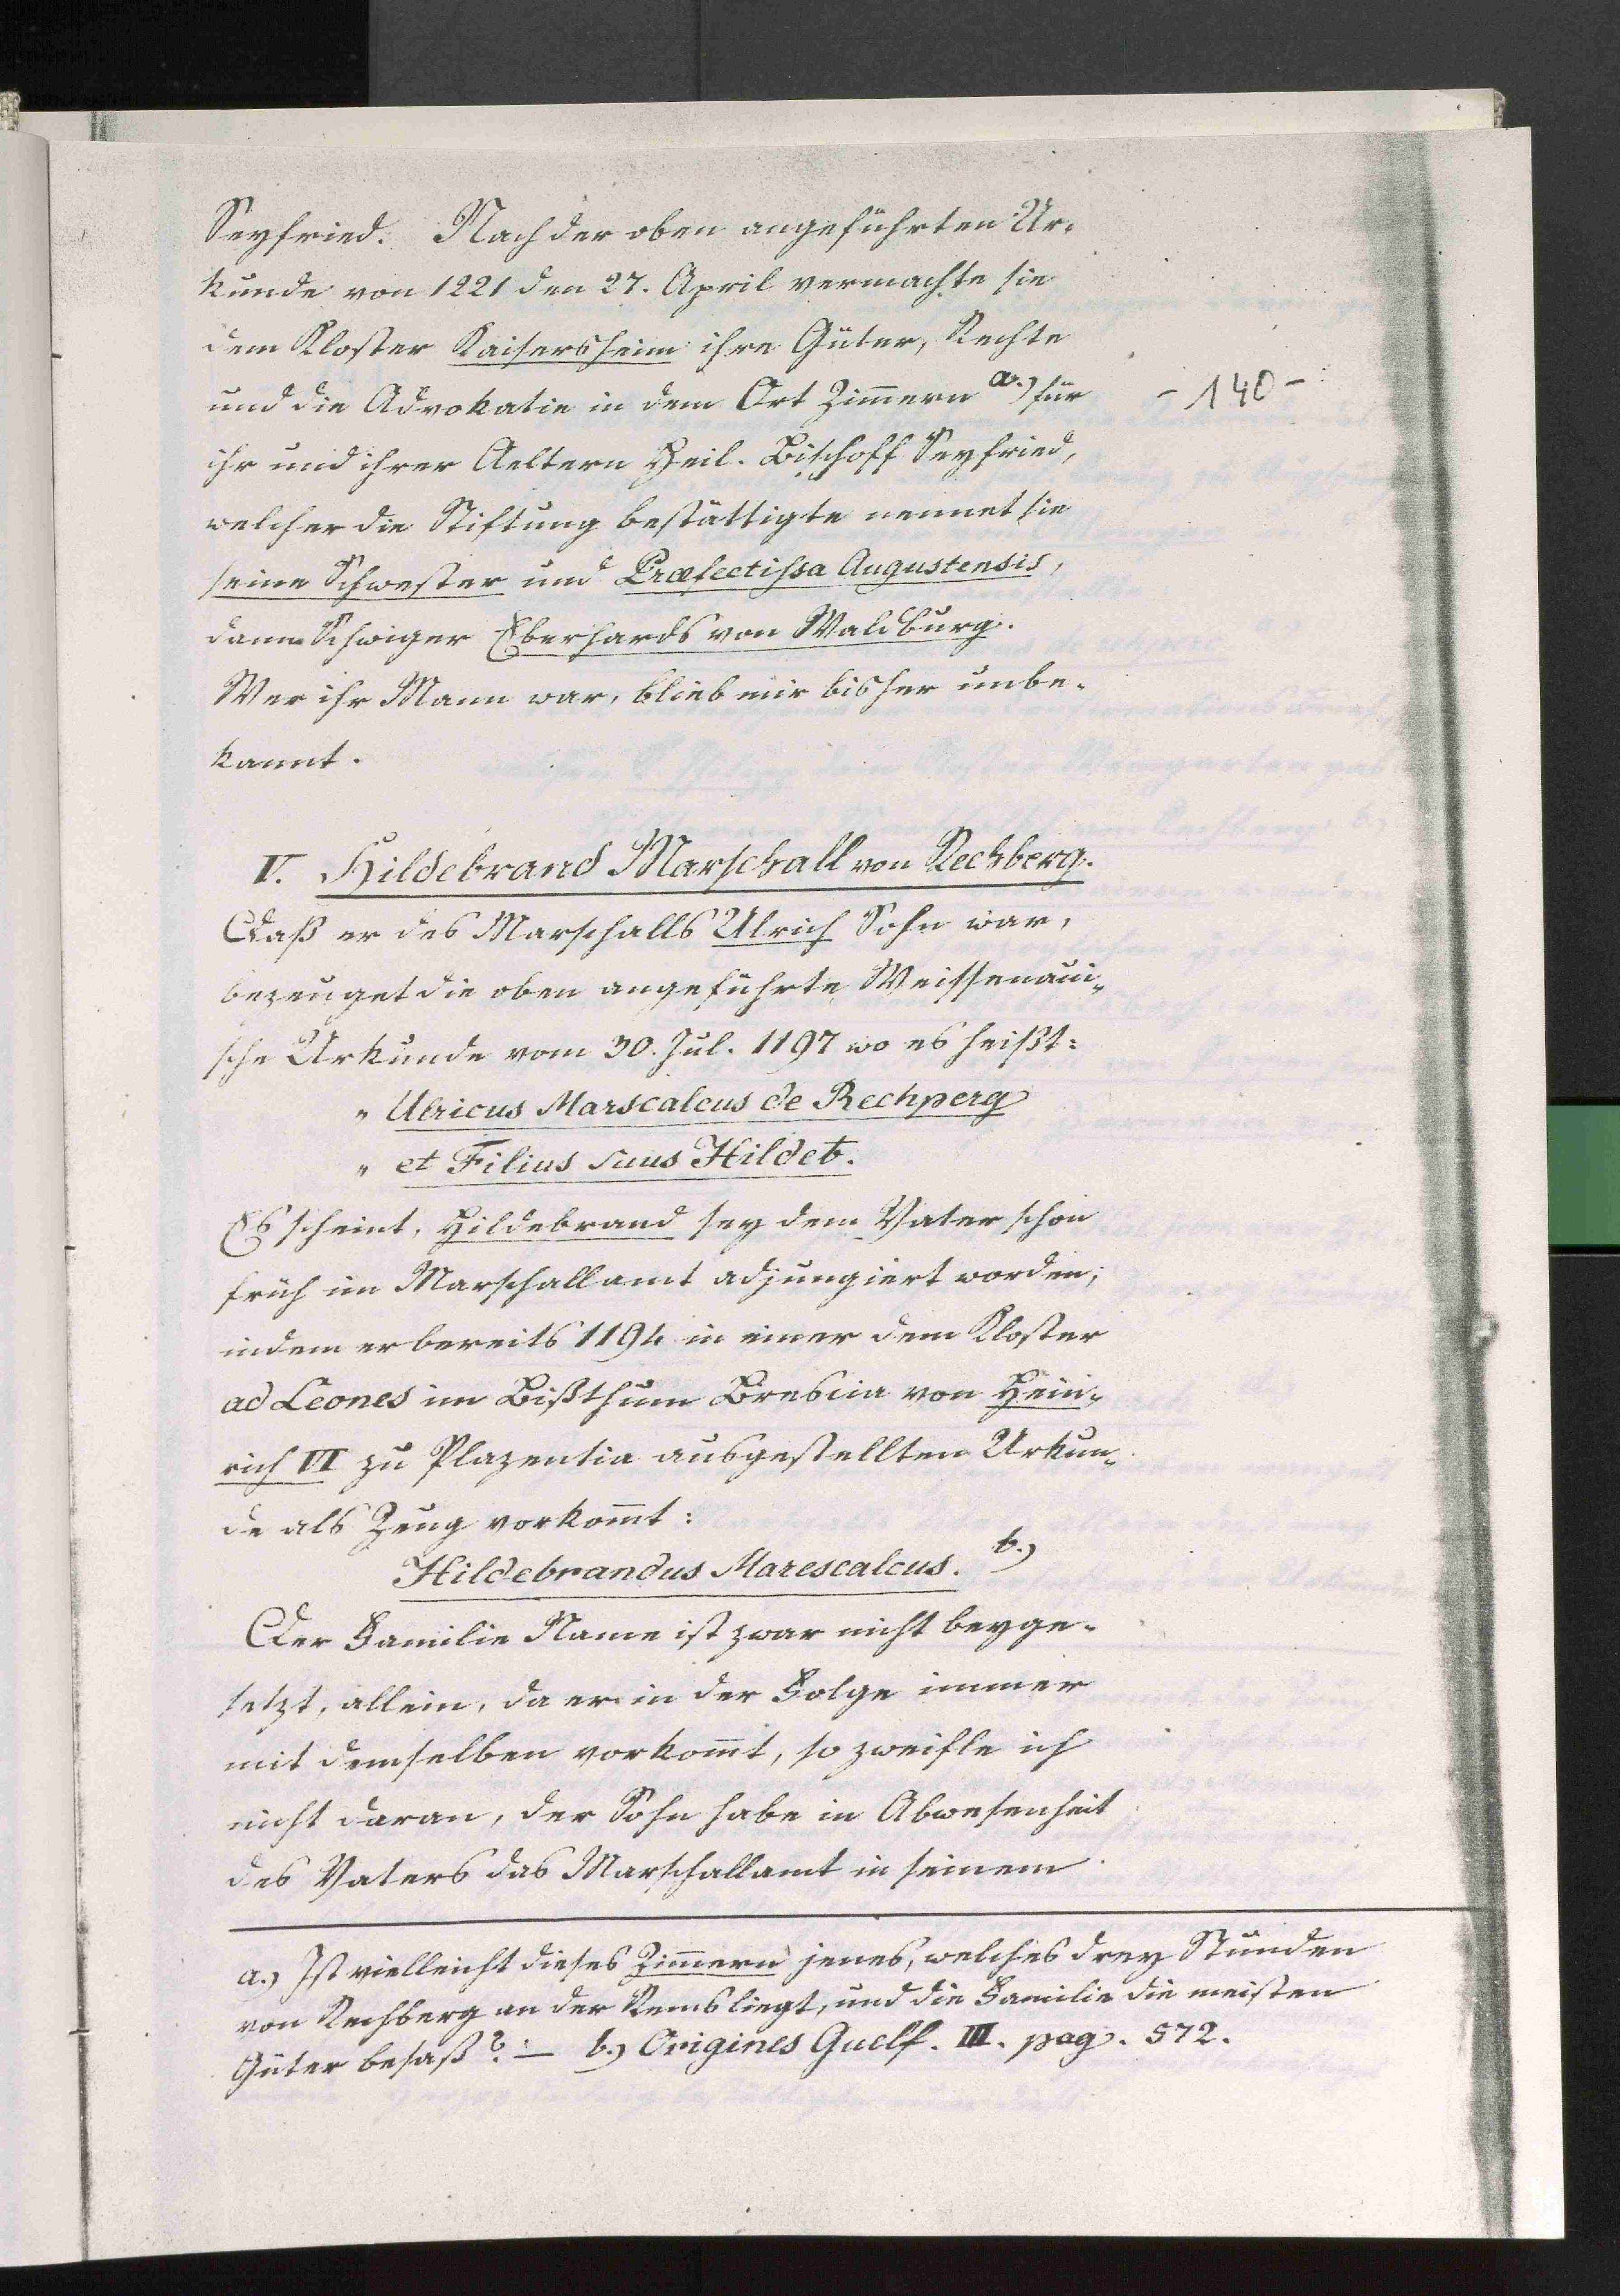 Seyfried. Nach der oben angeführten Ur-
kunde von 1221 den 27. April vermachte sie
dem Kloster Kaisersheim ihre Güter, Rechte
und die Advokatie in dem Ort Zim̅ern a.) für
- 140 -
ihr und ihrer Aeltern Heil. Bischoff Seyfried,
welcher die Stiftung bestättigte nennet sie
seine Schwester und Præfectissa Augustensis,
dann Schwiger Eberhards von Waldburg.
Wer ihr Mann war, blieb mir bisher unbe-
kannt.
V. Hildebrand Marschall von Rechberg.
Daß er des Marschalls Ulrich Sohn war,
bezeuget die oben angeführte Weissenaui-
sche Urkunde vom 30. Jul. 1197 wo es heißt:
" Ulricus Marscalcus de Rechperg
" et Filius suus Hildeb.
Es scheint, Hildebrand sey dem Vater schon
früh im Marschallamt adjungiert worden;
indem er bereits 1194 in einer dem Kloster
ad Leones im Bißthum Brescia von Hein-
rich VI zu Plazentia ausgestellten Urkun-
de als Zeug vorkom̅t:
Hildebrandus Marescalcus. b.)
Der Familie Name ist zwar nicht beyge-
setzt, allein, da er in der Folge immer
mit demselben vorkom̅t, so zweifle ich
nicht daran, der Sohn habe in Abwesenheit
des Vaters das Marschallamt in seinem
a.) Ist vielleicht dieses Zim̅ern jenes, welches drey Stunden
von Rechberg an der Rems liegt, und die Familie die meisten
Güter besaß? :— b.) Origines Guelf. III. pag. 572.